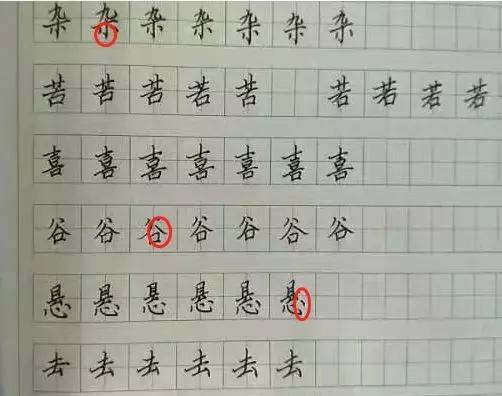 杂 杂 杂 杂 杂 杂 杂
苦 苦 苦 若 苦 若 若 若 若
喜 喜 喜 喜 喜 喜 喜
谷 谷 谷 谷 谷 谷 谷
悬 悬 悬 悬 悬 悬
去 去 去 去 去 去